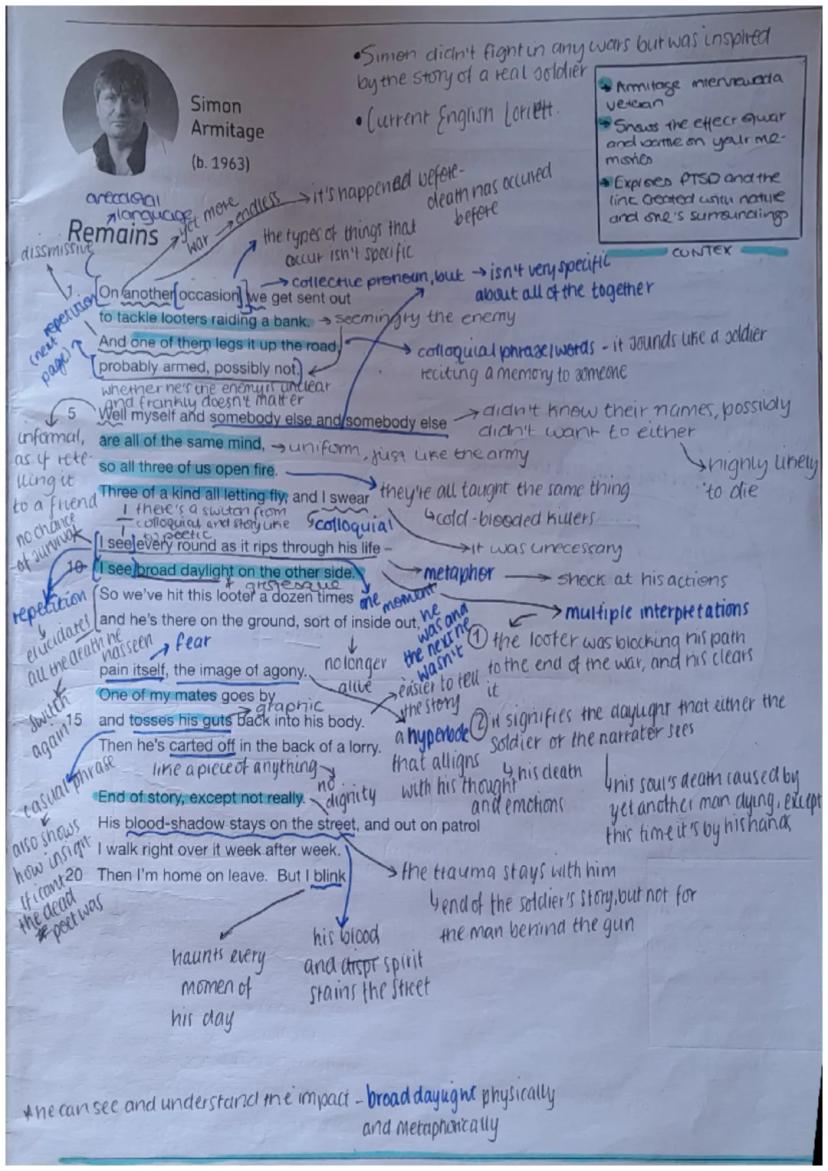 •Simon didn't fight in any wars but was inspired
by the story of a real soldier
•Current English Loriett.
Simon
Armitage
(b. 1963)
→Armitage interviewed a
veteran
→Shows the effect of war
and battle on your me-
mories
→Explores PTSD and the
line created with nature
and one's surroundings
CONTEX
anecdotal
language
Remains
dissmissive
yet more
war → endless
→it's happened before-
death has occured
before
the types of things that
occur isn't specific
→collective pronoun, but → isn't very specific
about all of the together
1 On another occasion, we get sent out
to tackle looters raiding a bank. → seemingly the enemy
And one of them legs it up the road,
→colloquial phrase/words - it sounds like a soldier
reciting a memory to someone
probably armed, possibly not.
repetition
(next
page)
whether he's the enemy is unclear
and frankly doesn't matter
5 Well myself and somebody else and somebody else
→didn't know their names, possibly
didn't want to either
↳highly likely
to die
are all of the same mind, → uniform, just like the army
so all three of us open fire.
they're all taught the same thing
↳cold-blooded killers
Three of a kind all letting fly, and I swear
informal,
as if rete-
lling it
to a friend
no chance
of survival
there's a switch from
colloquial and story like
to poetic
colloquial
I see every round as it rips through his life –
→it was unecessary
10 I see broad daylight on the other side.
metaphor → shock at his actions
* grotesque
repetition
elucidates
all the death he
has seen
So we've hit this looter a dozen times
and he's there on the ground, sort of inside out,
one moment
he
was and
the next he
wasn't
→multiple interpretations
① the looter was blocking his path
to the end of the war, and his clears
it
no longer
alive
fear
pain itself, the image of agony.
One of my mates goes by
→easier to tell
the story
graphic
15 and tosses his guts back into his body.
switch
again
a hyperbole
that alligns
with his thought
and emotions
② it signifies the daylight that either the
soldier or the narrater sees
↳his death
↳his soul's death caused by
yet another man dying, except
this time it's by his hands
Then he's carted off in the back of a lorry.
like a piece of anything → no
dignity
casual phrase
also shows
how insign-
ificant
the dead
* poet was
End of story, except not really.
His blood-shadow stays on the street, and out on patrol
I walk right over it week after week.
20 Then I'm home on leave. But I blink
→the trauma stays with him
↳end of the soldier's story, but not for
the man behind the gun
haunts every
momen of
his day
his blood
and spirit
stains the street
*he can see and understand the impact - broad daylight physically
and metaphorically